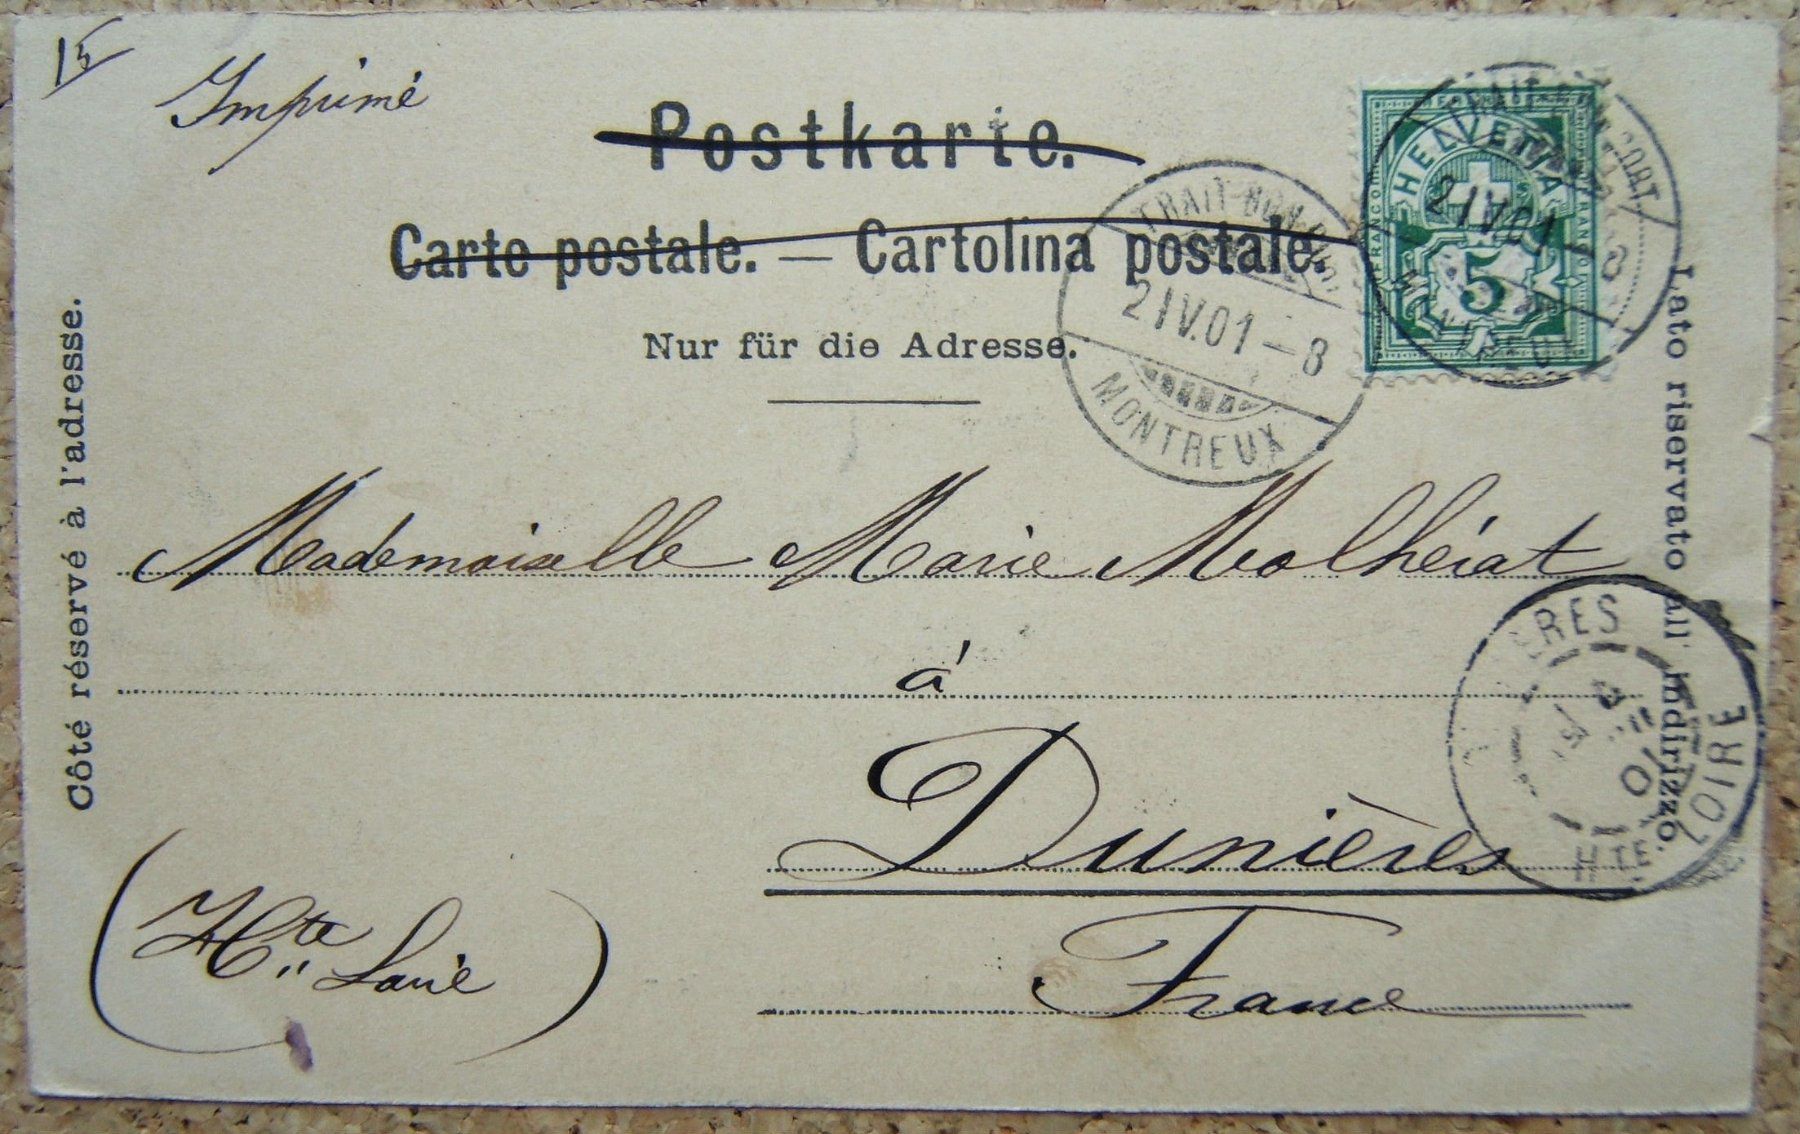 15
Imprimé
Postkarte.
Carte postale. — Cartolina postale.
Nur für die Adresse.
Côté réservé à l'adresse.
Lato riservato all' indirizzo.
FRANCO
HELVETIA
5
21V.01
TRAIT-BON-PORT
21V.01-8
MONTREUX
Mademoiselle Marie Malhérat
à
Dunières
France
(Hte Loire)
HTE LOIRE
01